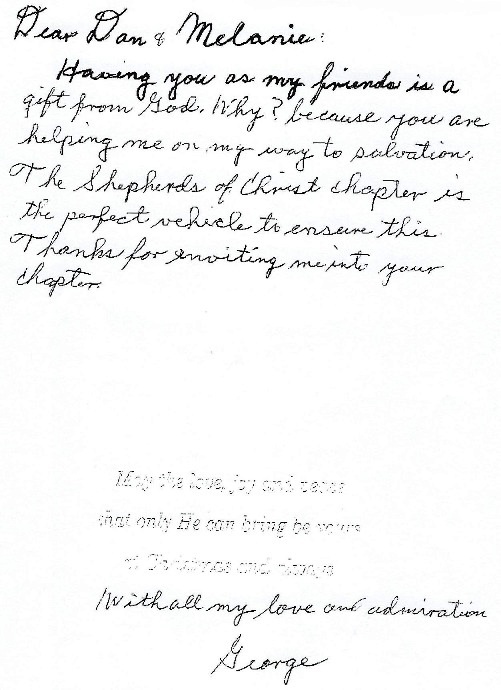 Dear Dan & Melanie:
Having you as my friends is a
gift from God. Why? because you are
helping me on my way to salvation.
The Shepherds of Christ chapter is
the perfect vehicle to ensure this.
Thanks for inviting me into your
chapter.
May the love, joy and peace
that only He can bring be yours
at Christmas and always
With all my love and admiration
George